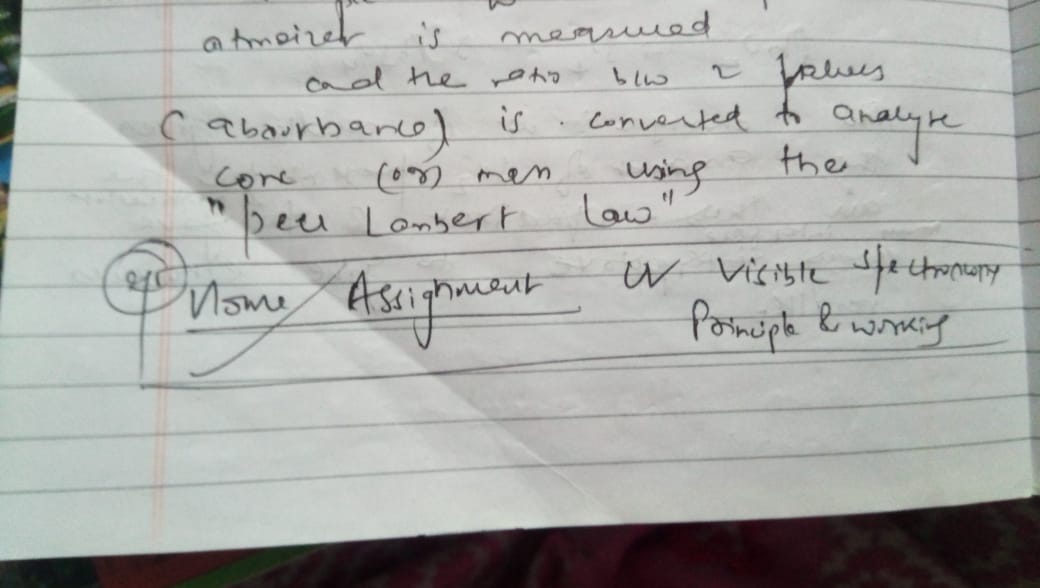 atmoizer is measured
and the ratio b/w 2 values
(abourbance) is converted to analyte
conc (or) mass using the
"beer Lambert law"
Home Assignment UV Visible spectroscopy
Principle & working